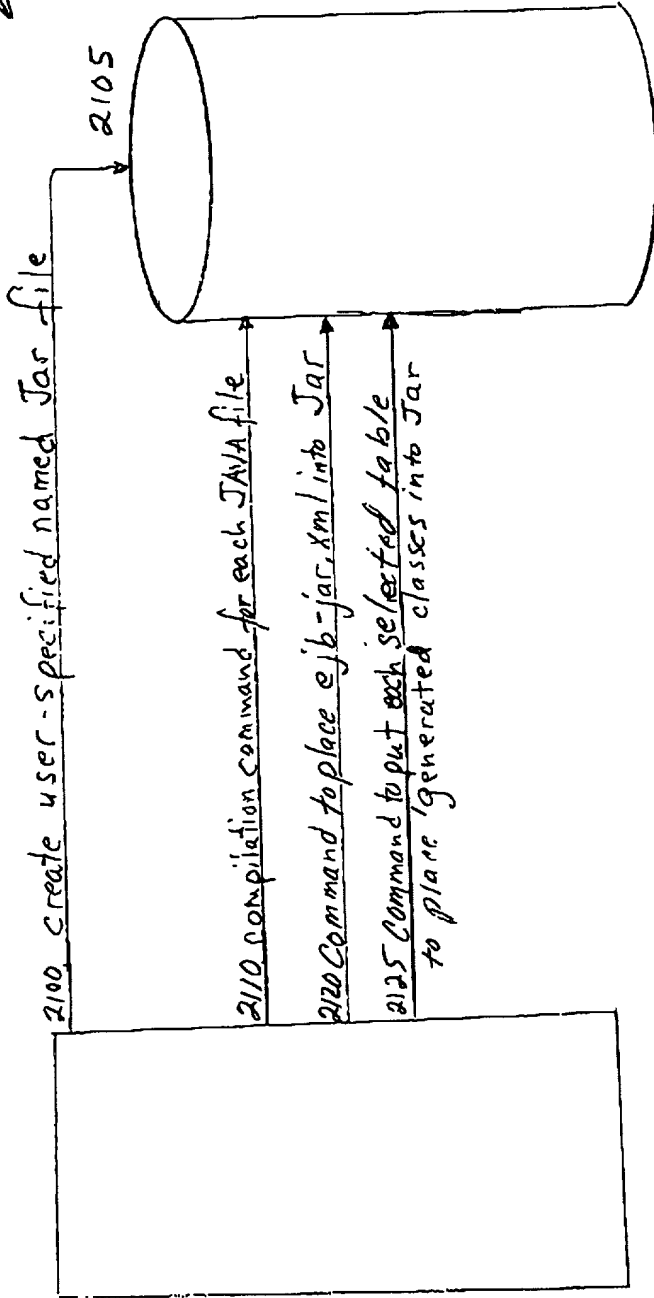 2100 create user-specified named Jar file
2105
2110 compilation command for each JAVA file
2120 Command to place ejb-jar.xml into Jar
2125 Command to put each selected table
to place generated classes into Jar